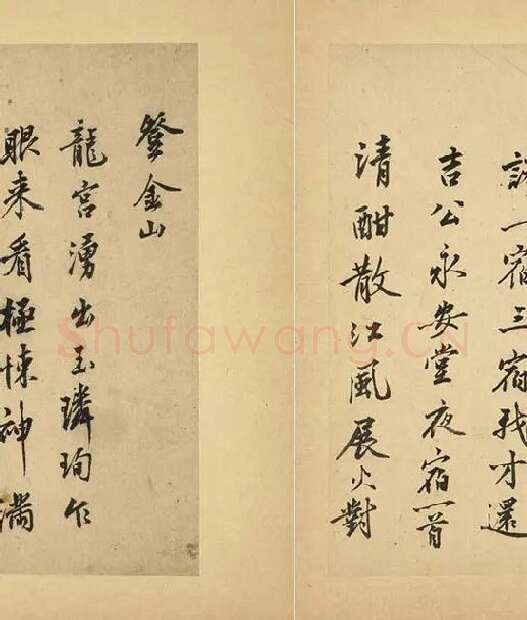 一宿三宿我才還
吉公永安堂夜宿一首
清酣散江風展火對
登金山
龍宮湧出玉璘珣乍
眼来看極悚神滿
Shufawang.CN